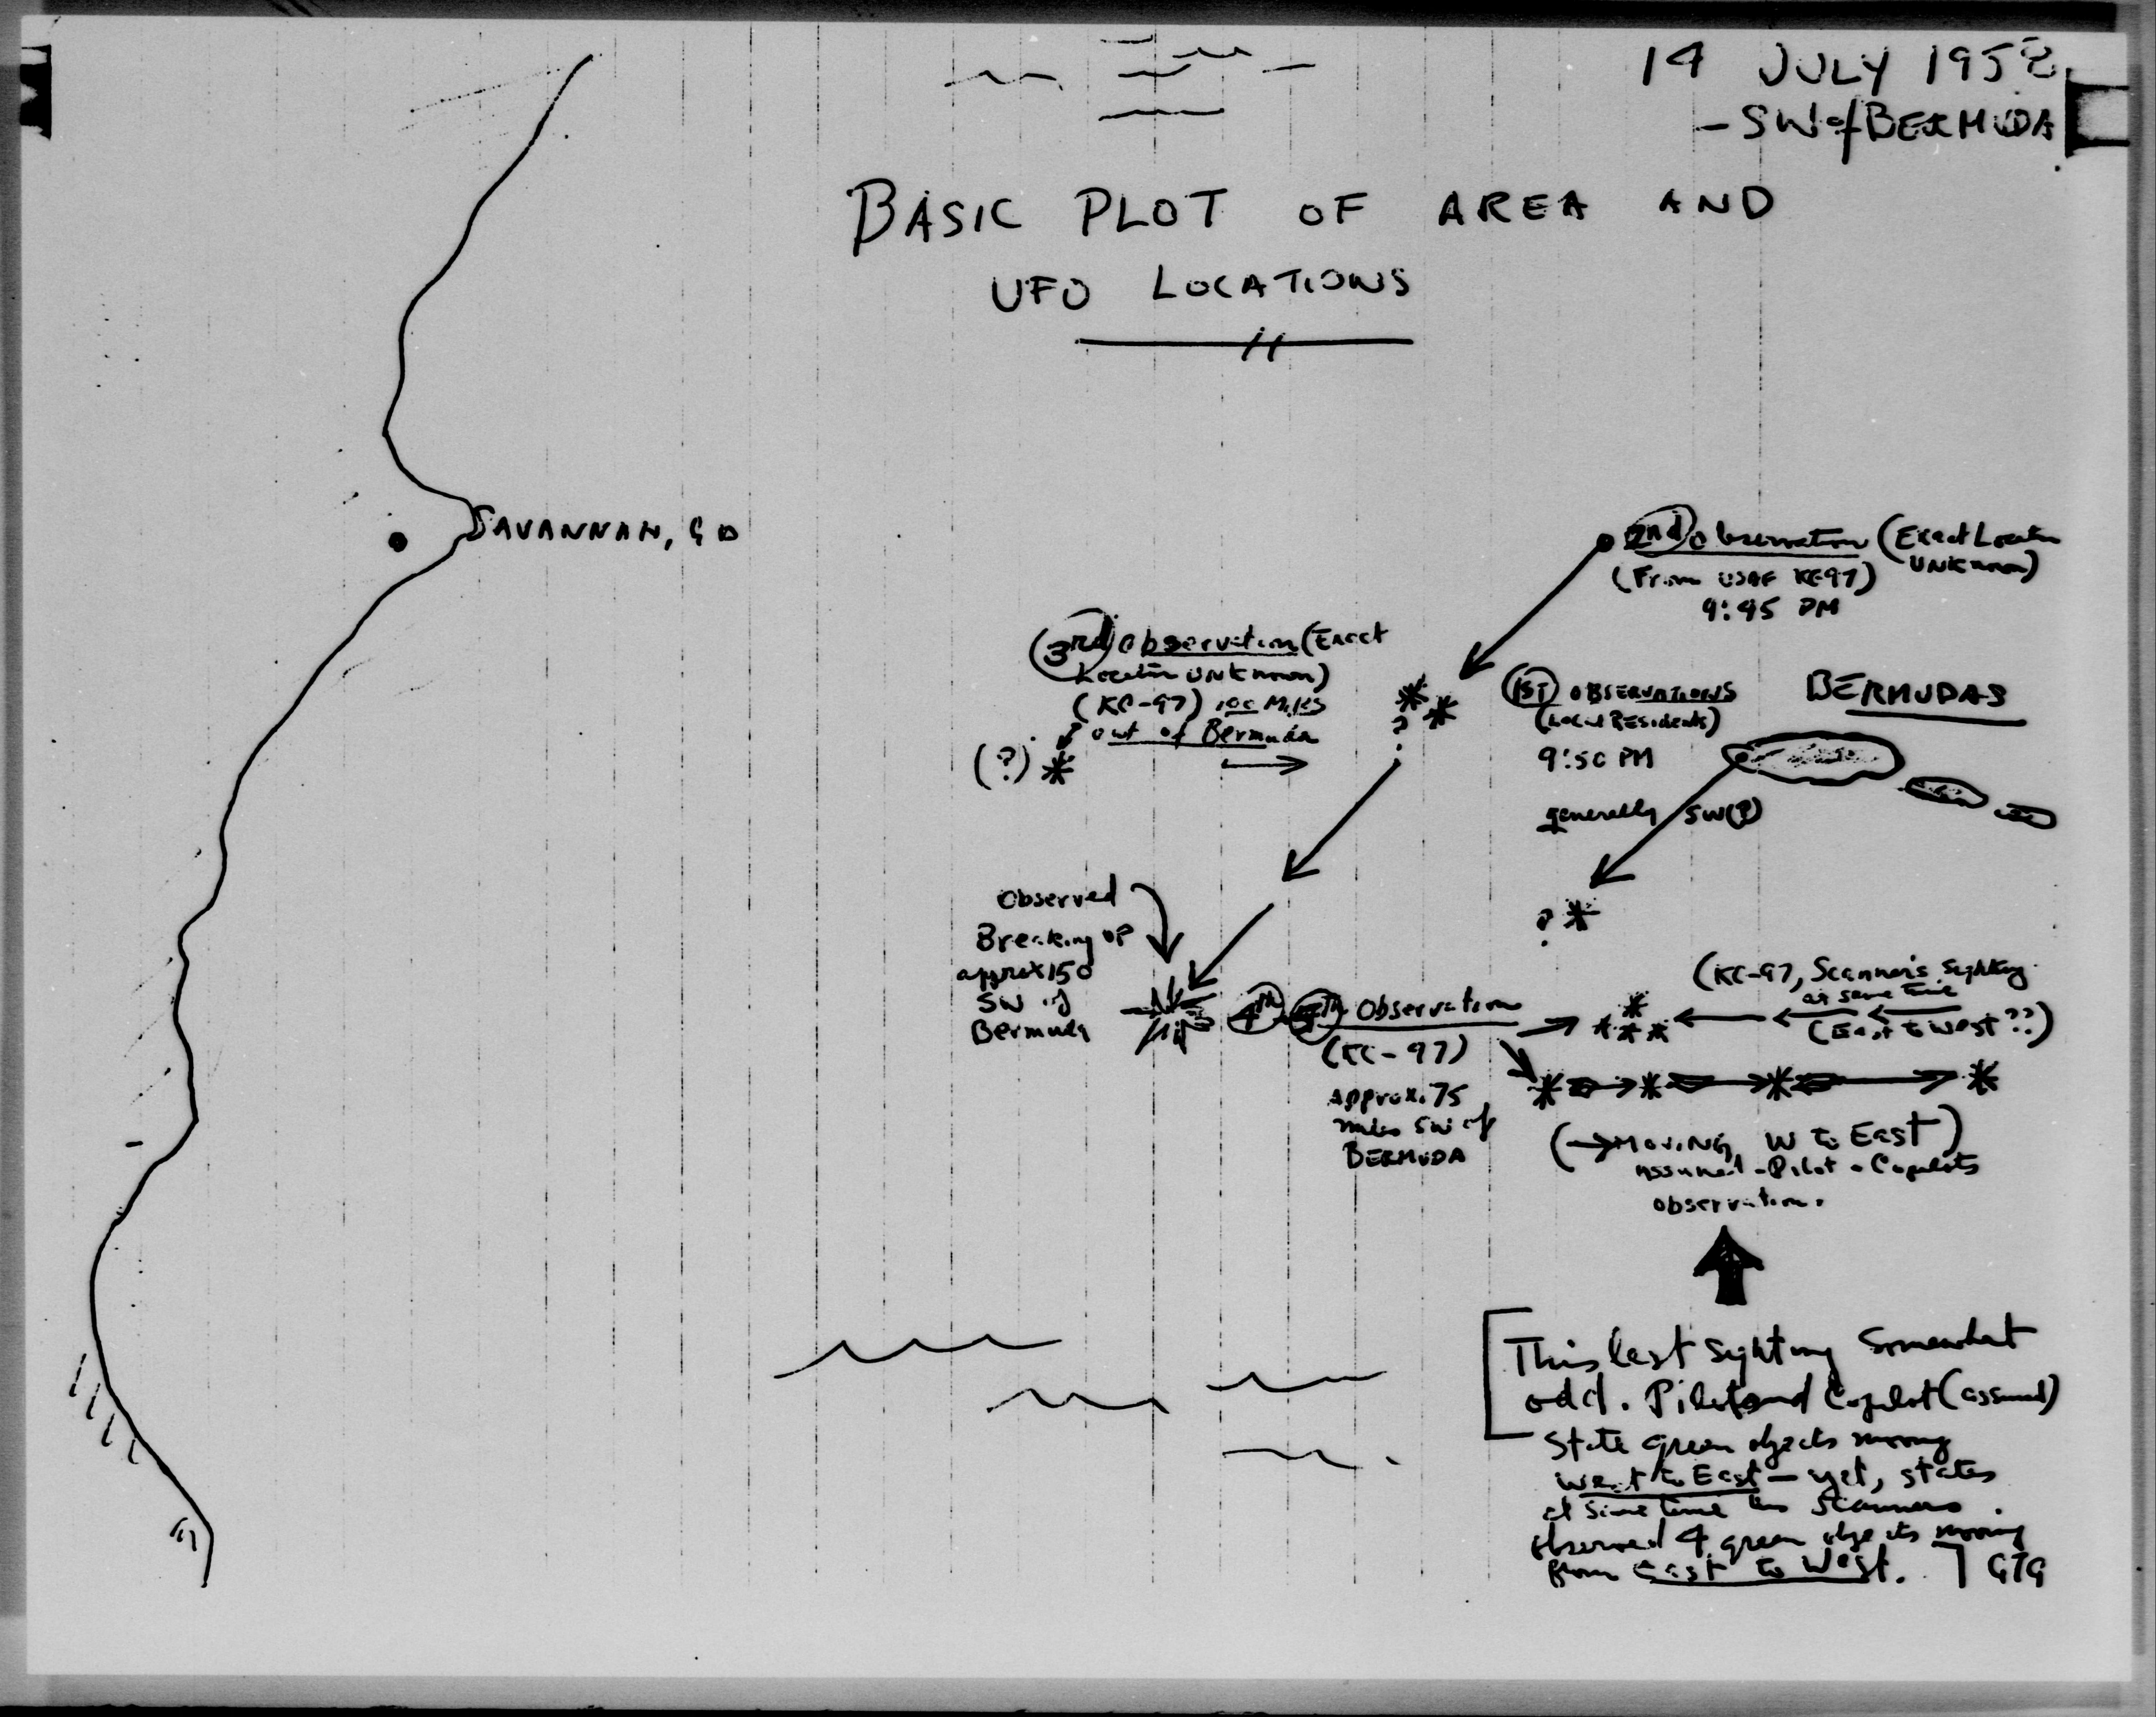 14 JULY 1958
- SW of BERMUDA
BASIC PLOT OF AREA AND
UFO LOCATIONS
SAVANNAH, GA
2nd Observation (Exact Location
UNKnown)
(From USAF KC97)
9:45 PM
3rd Observation (Exact
Location UNKnown)
(KC-97) 100 Miles
out of Bermuda
(?)
?
?
1ST OBSERVATIONS
(Local Residents)
9:50 PM
BERMUDAS
generally SW(?)
?
Observed
Breaking UP
approx 150
SW of
Bermuda
4th 5th Observation
(KC-97)
Approx. 75
miles SW of
BERMUDA
(KC-97, Scanner's Sighting
at same time
(East to West ??)
(→ MOVING W to East)
Assumed - Pilot - Copilots
observation.
[This last sighting Somewhat
odd. Pilot and Copilot (assumed)
State green objects moving
West to East - yet, states
at same time Scanners
observed 4 green objects moving
from East to West.] GTG